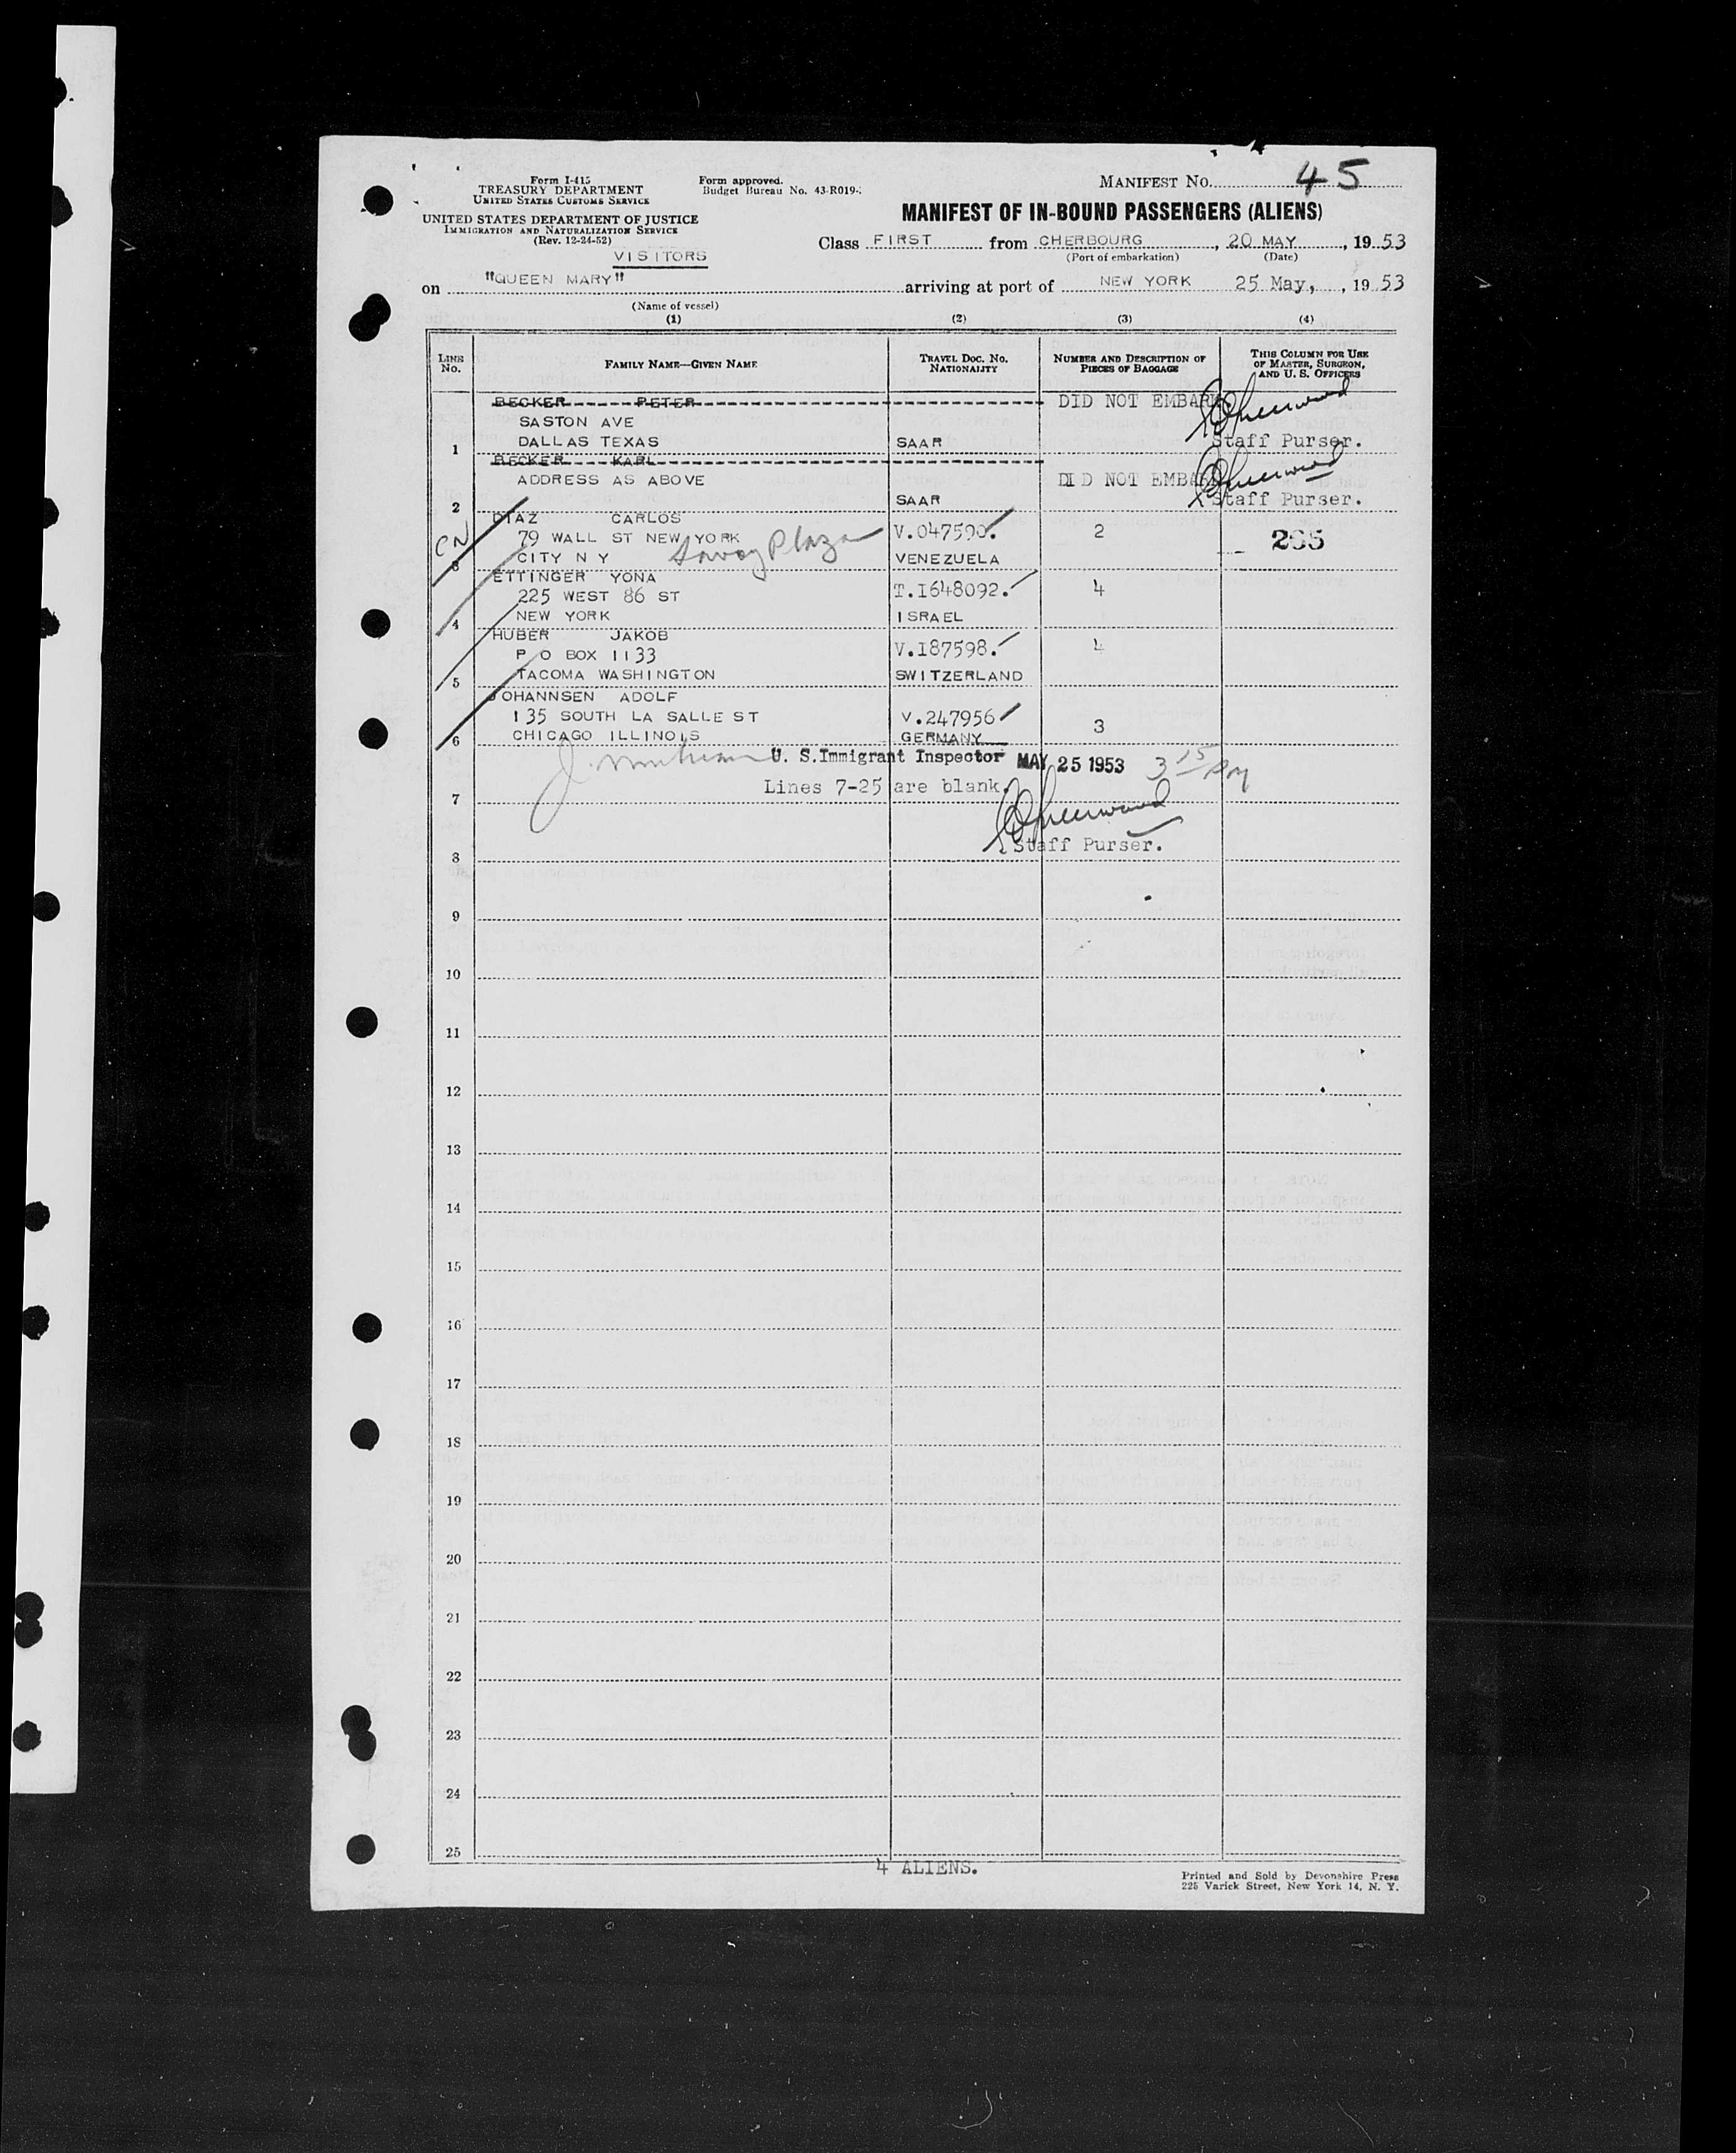 Form I-415
TREASURY DEPARTMENT
UNITED STATES CUSTOMS SERVICE
UNITED STATES DEPARTMENT OF JUSTICE
IMMIGRATION AND NATURALIZATION SERVICE
(Rev. 12-24-52)
Form approved.
Budget Bureau No. 43-R019-
MANIFEST NO. 45
MANIFEST OF IN-BOUND PASSENGERS (ALIENS)
Class FIRST from CHERBOURG, 20 MAY, 1953
(Port of embarkation) (Date)
VISITORS
on "QUEEN MARY" arriving at port of NEW YORK 25 May, , 1953
(Name of vessel)
(1) (2) (3) (4)
LINE No. FAMILY NAME—GIVEN NAME TRAVEL DOC. NO. NATIONALITY NUMBER AND DESCRIPTION OF PIECES OF BAGGAGE THIS COLUMN FOR USE OF MASTER, SURGEON, AND U. S. OFFICERS
BECKER PETER DID NOT EMBARK
SASTON AVE
1 DALLAS TEXAS SAAR Staff Purser.
BECKER KARL
ADDRESS AS ABOVE DID NOT EMBARK
2 SAAR Staff Purser.
DIAZ CARLOS
CN 79 WALL ST NEW YORK Savoy Plaza V.047590. 2 265
3 CITY N Y VENEZUELA
ETTINGER YONA
225 WEST 86 ST T.I648092. 4
4 NEW YORK ISRAEL
HUBER JAKOB
P O BOX 1133 V.I87598. 4
5 TACOMA WASHINGTON SWITZERLAND
JOHANNSEN ADOLF
135 SOUTH LA SALLE ST V.247956 3
6 CHICAGO ILLINOIS GERMANY
U. S. Immigrant Inspector MAY 25 1953 3 15 PM
Lines 7-25 are blank.
7
Staff Purser.
8
9
10
11
12
13
14
15
16
17
18
19
20
21
22
23
24
25
4 ALIENS.
Printed and Sold by Devonshire Press
225 Varick Street, New York 14, N. Y.